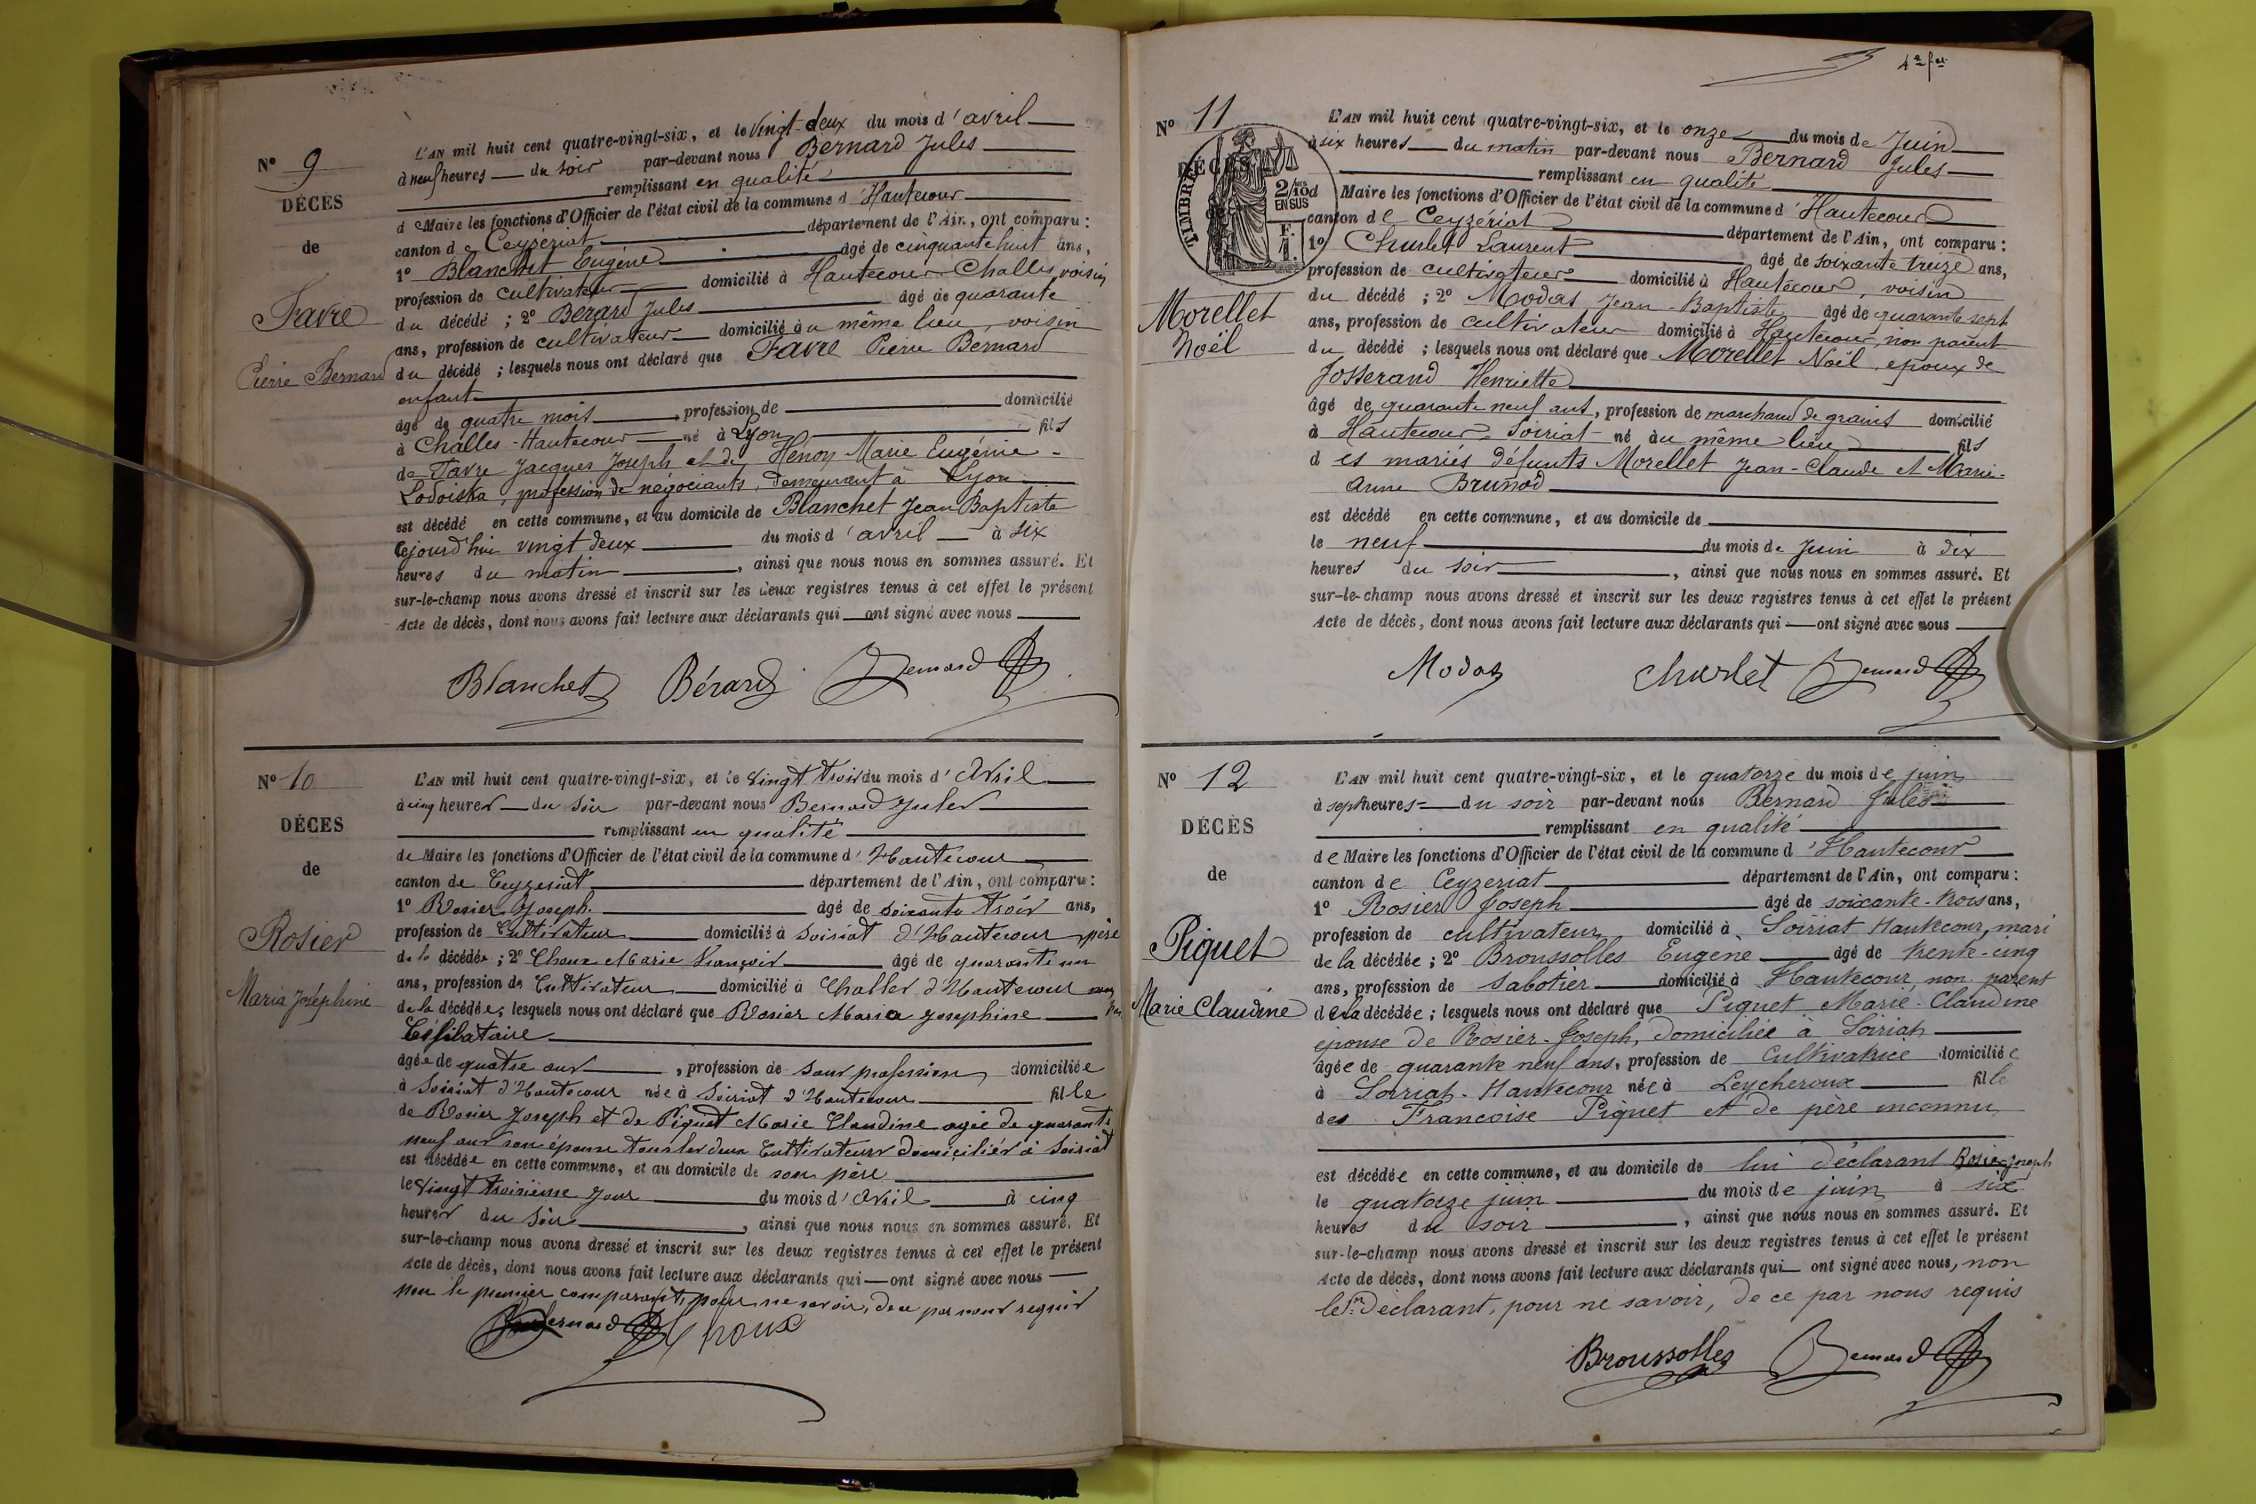 N° 9
DÉCÈS
de
Favre
Pierre Bernard
L'AN mil huit cent quatre-vingt-six, et le Vingt-deux du mois d'avril
à neuf heures du soir par-devant nous Bernard Jules
remplissant en qualité
d Maire les fonctions d'Officier de l'état civil de la commune d'Hautecour
canton de Ceyzériat département de l'Ain, ont comparu :
1° Blanchet Eugène âgé de cinquante huit ans,
profession de cultivateur domicilié à Hautecour-Challes, voisin
du décédé ; 2° Bérard Jules âgé de quarante
ans, profession de cultivateur domicilié au même lieu, voisin
du décédé ; lesquels nous ont déclaré que Favre Pierre Bernard
enfant
âgé de quatre mois, profession de domicilié
à Challes-Hautecour né à Lyon fils
de Favre Jacques Joseph et de Hénon Marie Eugénie-
Lodoiska, profession de négociants, demeurant à Lyon
est décédé en cette commune, et au domicile de Blanchet Jean Baptiste
cejourd'hui vingt deux du mois d'avril à six
heures du matin, ainsi que nous nous en sommes assuré. Et
sur-le-champ nous avons dressé et inscrit sur les deux registres tenus à cet effet le présent
Acte de décès, dont nous avons fait lecture aux déclarants qui ont signé avec nous
Blanchet Bérard Bernard
N° 10
DÉCÈS
de
Rosier
Maria Joséphine
L'AN mil huit cent quatre-vingt-six, et le vingt trois du mois d'Avril
à cinq heures du soir par-devant nous Bernard Jules
remplissant en qualité
de Maire les fonctions d'Officier de l'état civil de la commune d'Hautecour
canton de Ceyzeriat département de l'Ain, ont comparu :
1° Rosier Joseph âgé de soixante trois ans,
profession de Cultivateur domicilié à Soiriat d'Hautecour père
de la décédée ; 2° Choux Marie François âgé de quarante un
ans, profession de Cultivateur domicilié à Challes d'Hautecour non
de la décédée ; lesquels nous ont déclaré que Rosier Maria Josephine
Célibataire
âgée de quatre ans, profession de sans profession domiciliée
à Soiriat d'Hautecour née à Soiriat d'Hautecour fille
de Rosier Joseph et de Piguet Marie Claudine agée de quarante
neuf ans son épouse tous les deux Cultivateurs domiciliés à Soiriat
est décédée en cette commune, et au domicile de son père
le vingt troisième jour du mois d'Avril à cinq
heures du soir, ainsi que nous nous en sommes assuré. Et
sur-le-champ nous avons dressé et inscrit sur les deux registres tenus à cet effet le présent
Acte de décès, dont nous avons fait lecture aux déclarants qui ont signé avec nous
non le premier comparant, pour ne savoir, de ce par nous requis
Bernard Choux
4e fet
N° 11
DÉCÈS
TIMBRE
2/10es d
EN SUS
F.
1.
Morellet
Noël
L'AN mil huit cent quatre-vingt-six, et le onze du mois de Juin
à six heures du matin par-devant nous Bernard Jules
remplissant en qualité
Maire les fonctions d'Officier de l'état civil de la commune d'Hautecour
canton de Ceyzériat département de l'Ain, ont comparu :
1° Charlet Laurent âgé de soixante treize ans,
profession de cultivateur domicilié à Hautecour, voisin
du décédé ; 2° Modas Jean-Baptiste âgé de quarante sept
ans, profession de cultivateur domicilié à Hautecour, non parent
du décédé ; lesquels nous ont déclaré que Morellet Noël, époux de
Josserand Henriette
âgé de quarante neuf ans, profession de marchand de grains domicilié
à Hautecour-Soiriat né au même lieu fils
des mariés défunts Morellet Jean-Claude et Marie-
Anne Brunod
est décédé en cette commune, et au domicile de
le neuf du mois de Juin à dix
heures du soir, ainsi que nous nous en sommes assuré. Et
sur-le-champ nous avons dressé et inscrit sur les deux registres tenus à cet effet le présent
Acte de décès, dont nous avons fait lecture aux déclarants qui ont signé avec nous
Modas Charlet Bernard
N° 12
DÉCÈS
de
Piguet
Marie Claudine
L'AN mil huit cent quatre-vingt-six, et le quatorze du mois de juin
à sept heures du soir par-devant nous Bernard Jules
remplissant en qualité
de Maire les fonctions d'Officier de l'état civil de la commune d'Hautecour
canton de Ceyzeriat département de l'Ain, ont comparu :
1° Rosier Joseph âgé de soixante-trois ans,
profession de cultivateur domicilié à Soiriat Hautecour, mari
de la décédée ; 2° Broussolles Eugène âgé de trente-cinq
ans, profession de sabotier domicilié à Hautecour non parent
de la décédée ; lesquels nous ont déclaré que Piguet Marie-Claudine
épouse de Rosier-Joseph, domiciliée à Soiriat
âgée de quarante neuf ans, profession de Cultivatrice domiciliée
à Soiriat-Hautecour née à Leycheroux fille
des Françoise Piguet et de père inconnu
est décédée en cette commune, et au domicile de lui déclarant Rosier Joseph
le quatorze juin du mois de juin à six
heures du soir, ainsi que nous nous en sommes assuré. Et
sur-le-champ nous avons dressé et inscrit sur les deux registres tenus à cet effet le présent
Acte de décès, dont nous avons fait lecture aux déclarants qui ont signé avec nous, non
le 1er déclarant, pour ne savoir, de ce par nous requis
Broussolles Bernard